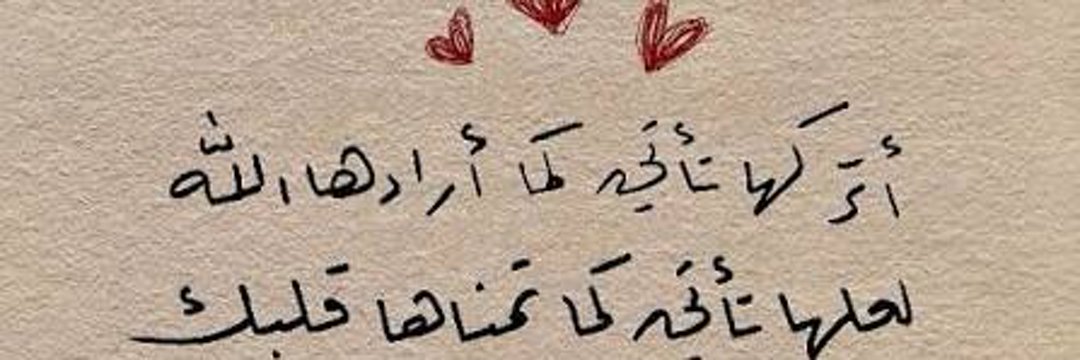 أتركها تأتي كما أرادها الله
لعلها تأتي كما تمناها قلبك